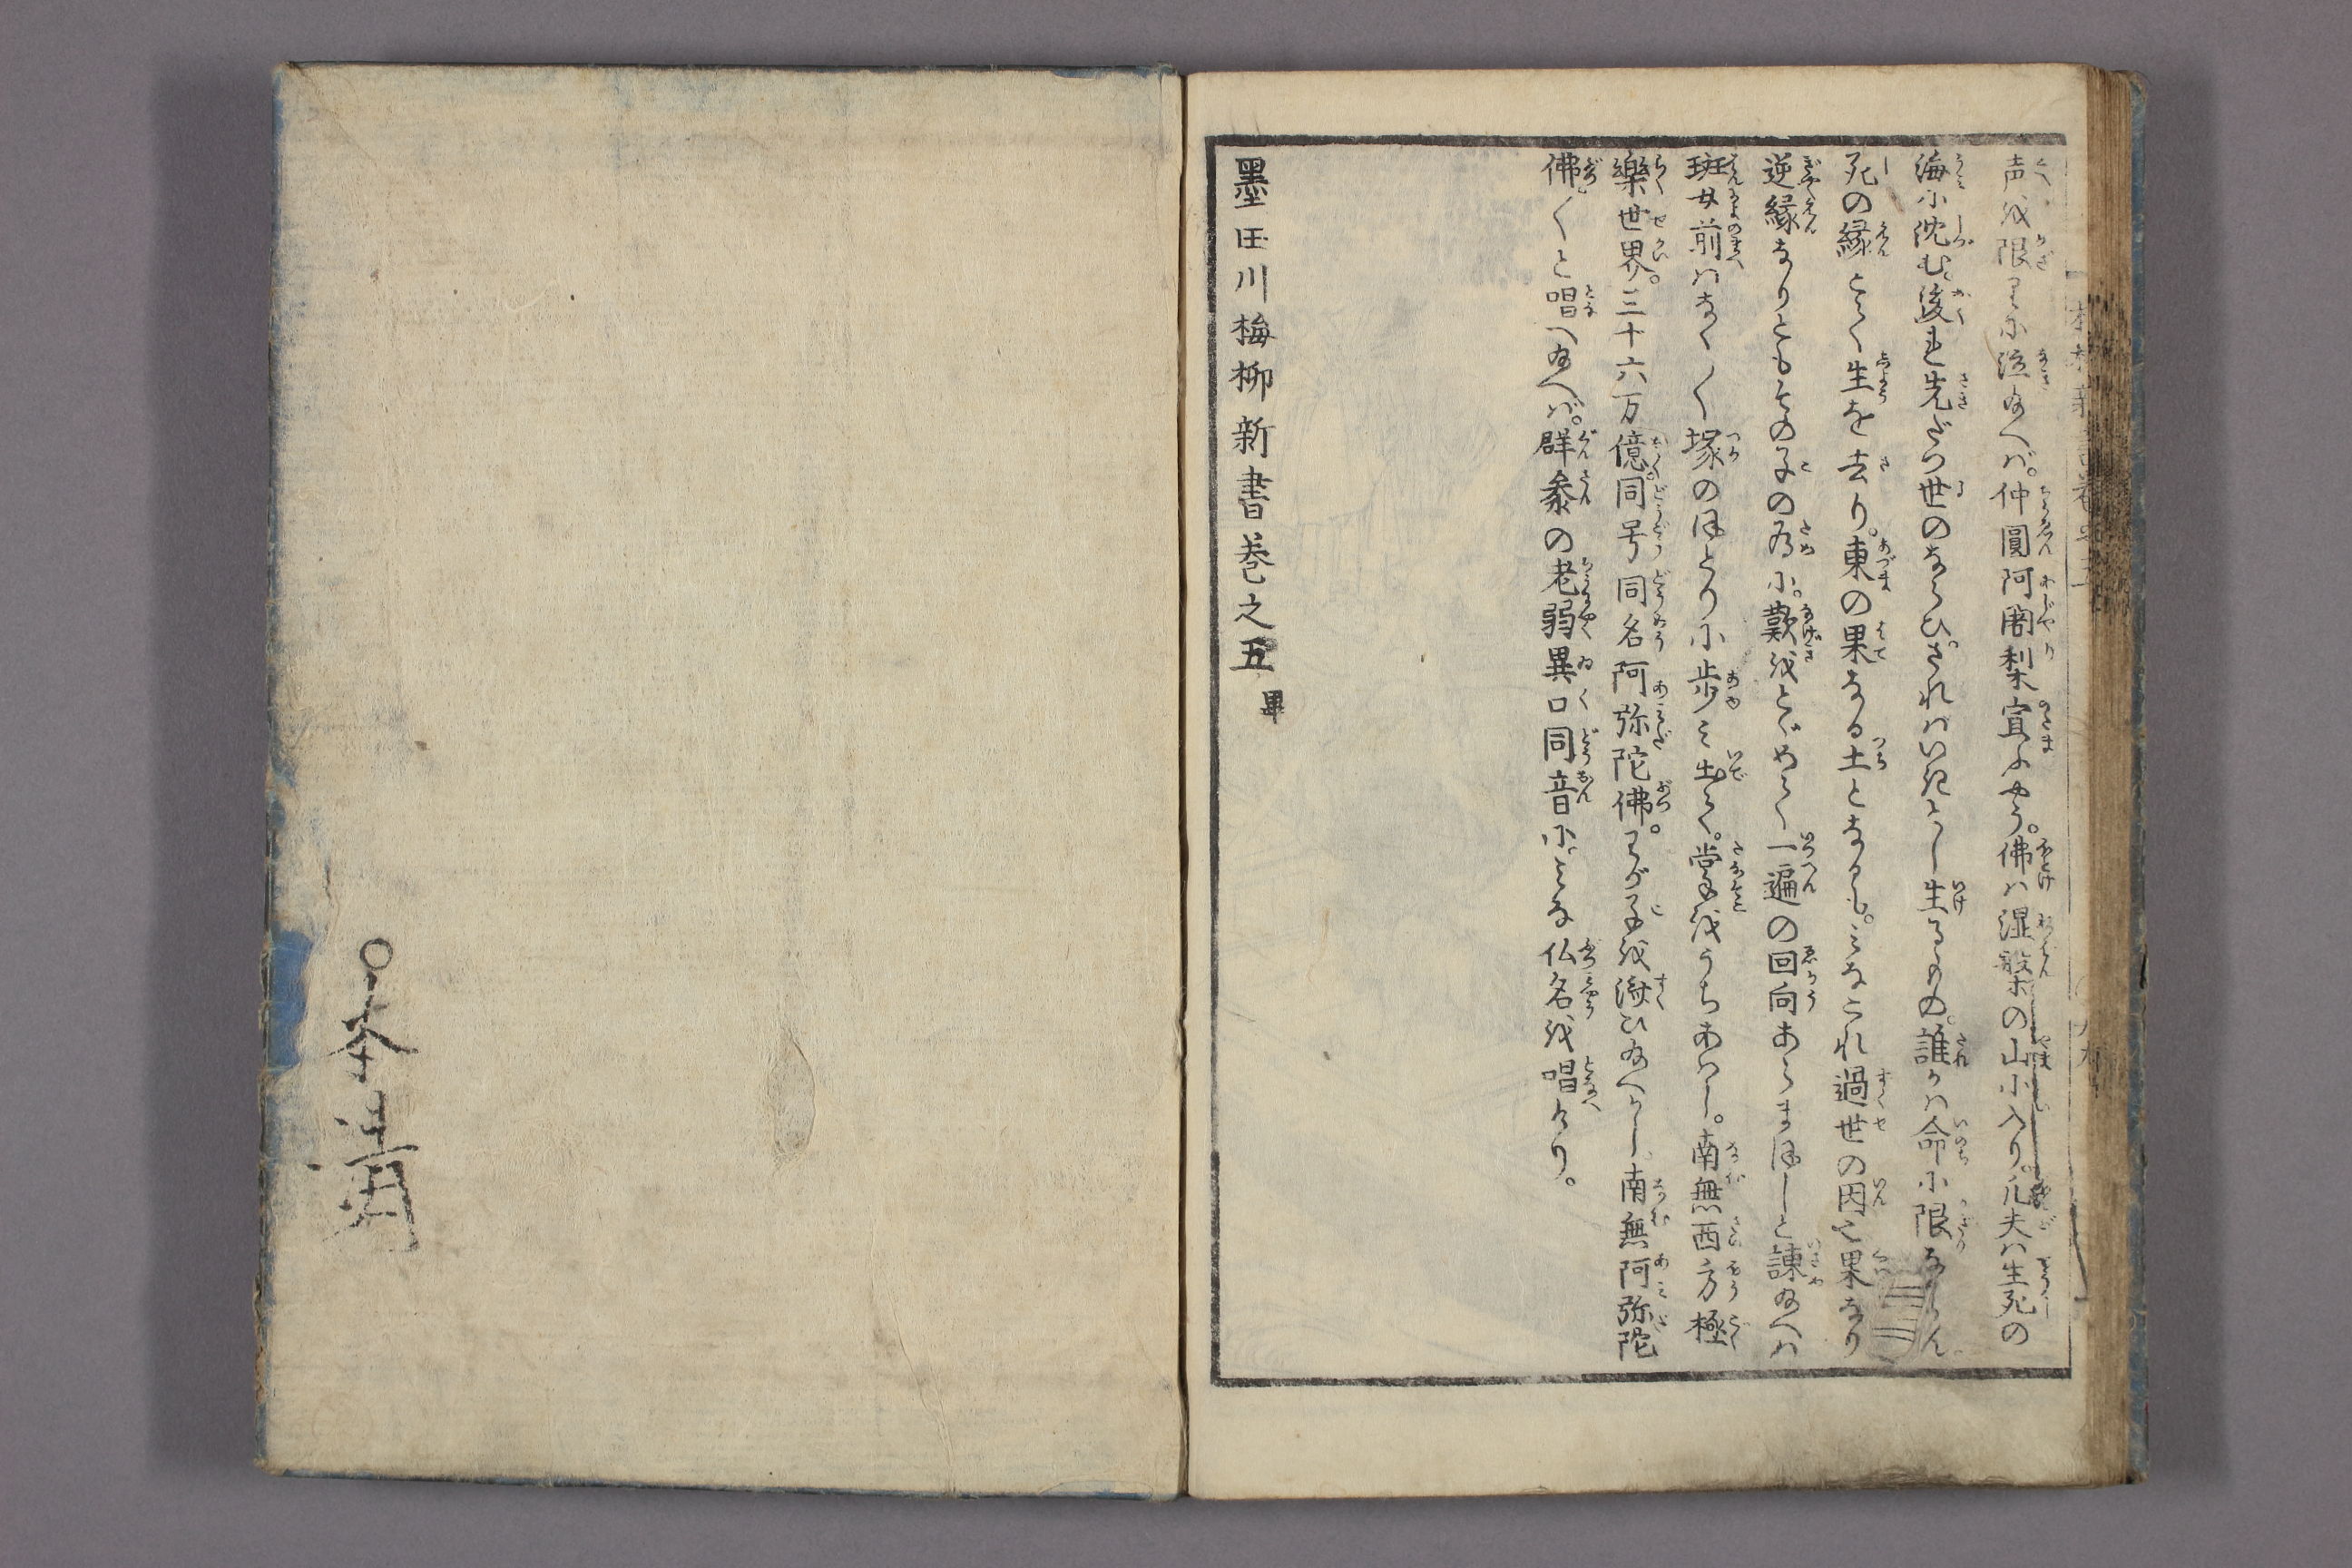 声を限りに泣給へば。仲圓阿闍梨宣ふやう。佛は涅槃の山に入り。凡夫は生死の
海に沈む。後れ先だつ世のならひ。さればいきとし生るもの。誰かは命に限なからん
死の縁とく生を去り。東の果なる土となるも。みなこれ過世の因と果なり
逆縁なりともその子の為に。歎をとゞめて一遍の回向あらまほしと諌給へは
班女前はなく〳〵塚のほとりに歩み出て。掌をうちあはし。南無西方極
樂世界。三十六万億。同号同名阿弥陀佛。わが子を済ひ給へかし。南無阿弥陀
佛〳〵と唱へ給へば。群參の老弱異口同音に。みな仏名を唱けり。
墨田川梅柳新書巻之五畢
本清